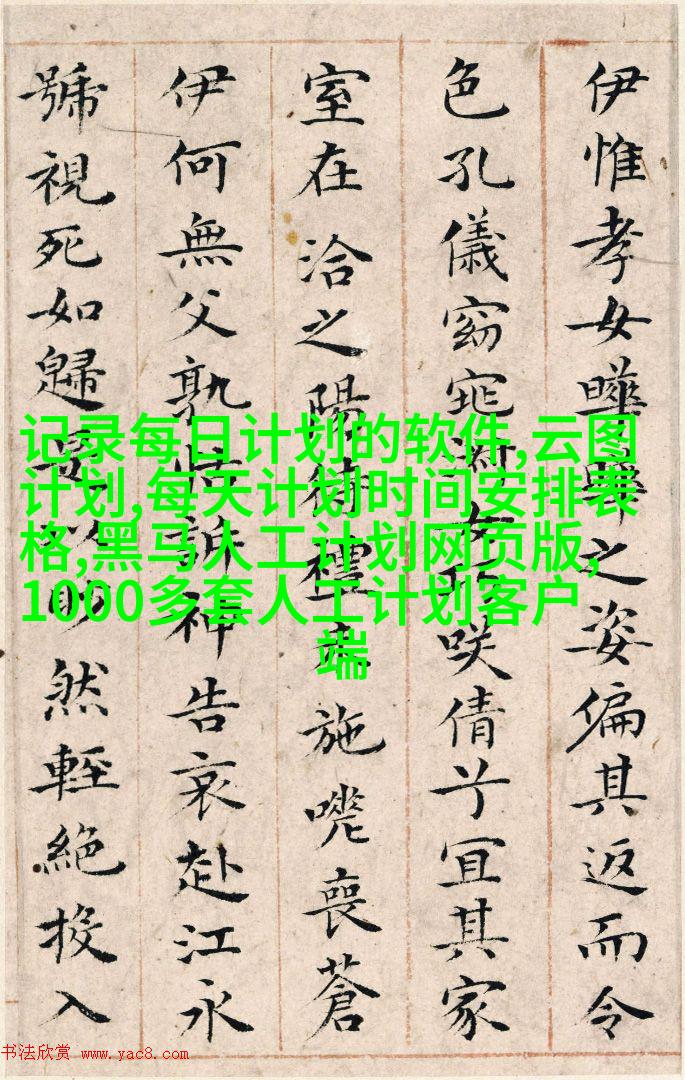 伊惟孝女曄曄之姿偏其返而令
色孔儀窈窕淑女巧咲倩兮宜其家
室在洽之陽待禮未施嗟喪蒼
伊何無父孰怙訴神告哀赴江永
號視死如歸是以眇然輕絕投入
记录每日计划的软件,云图
计划,每天计划时间安排表
格,黑马人工计划网页版,
1000多套人工计划客户
端
书法欣赏 www.yac8.com